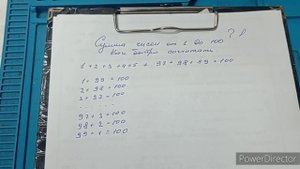 Сумма чисел от 1 до 100 ?
как быстро сосчитать
1+2+3+4+5+ 97+98+99=100
1+99=100
2+98=100
3+97=100
97+3=100
98+2=100
99+1=100
PowerDirector